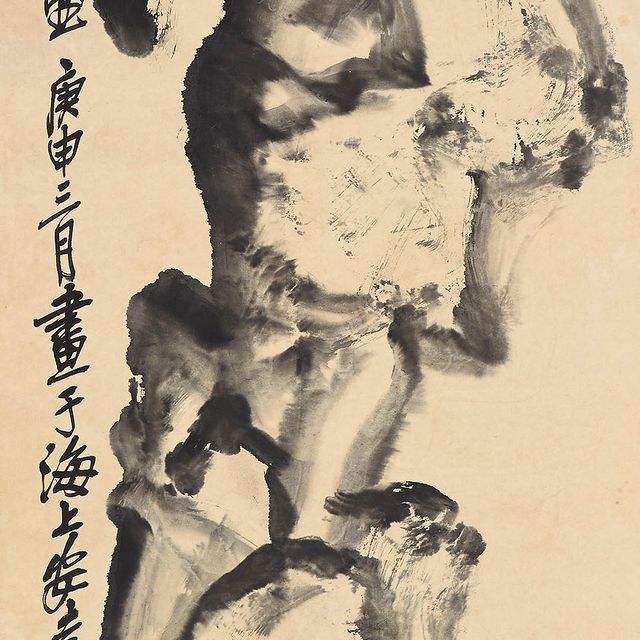 庚申三月畫于海上安